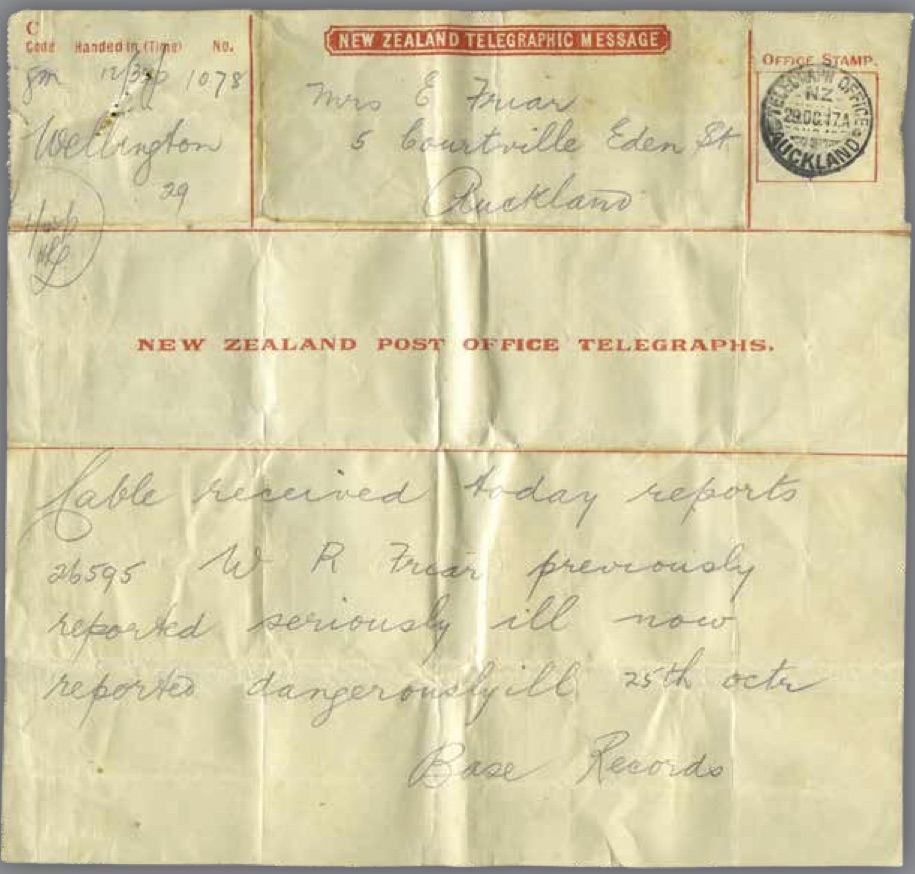 C
Code Handed in (Time) No.
gm 12/30p 1078
Wellington
29
NEW ZEALAND TELEGRAPHIC MESSAGE
Mrs E Friar
5 Courtville Eden St
Auckland
OFFICE STAMP.
TELEGRAPH OFFICE
NZ
29.OC.17.A
AUCKLAND
NEW ZEALAND POST OFFICE TELEGRAPHS.
Cable received today reports
26595 W R Friar previously
reported seriously ill now
reported dangerously ill 25th octr
Base Records